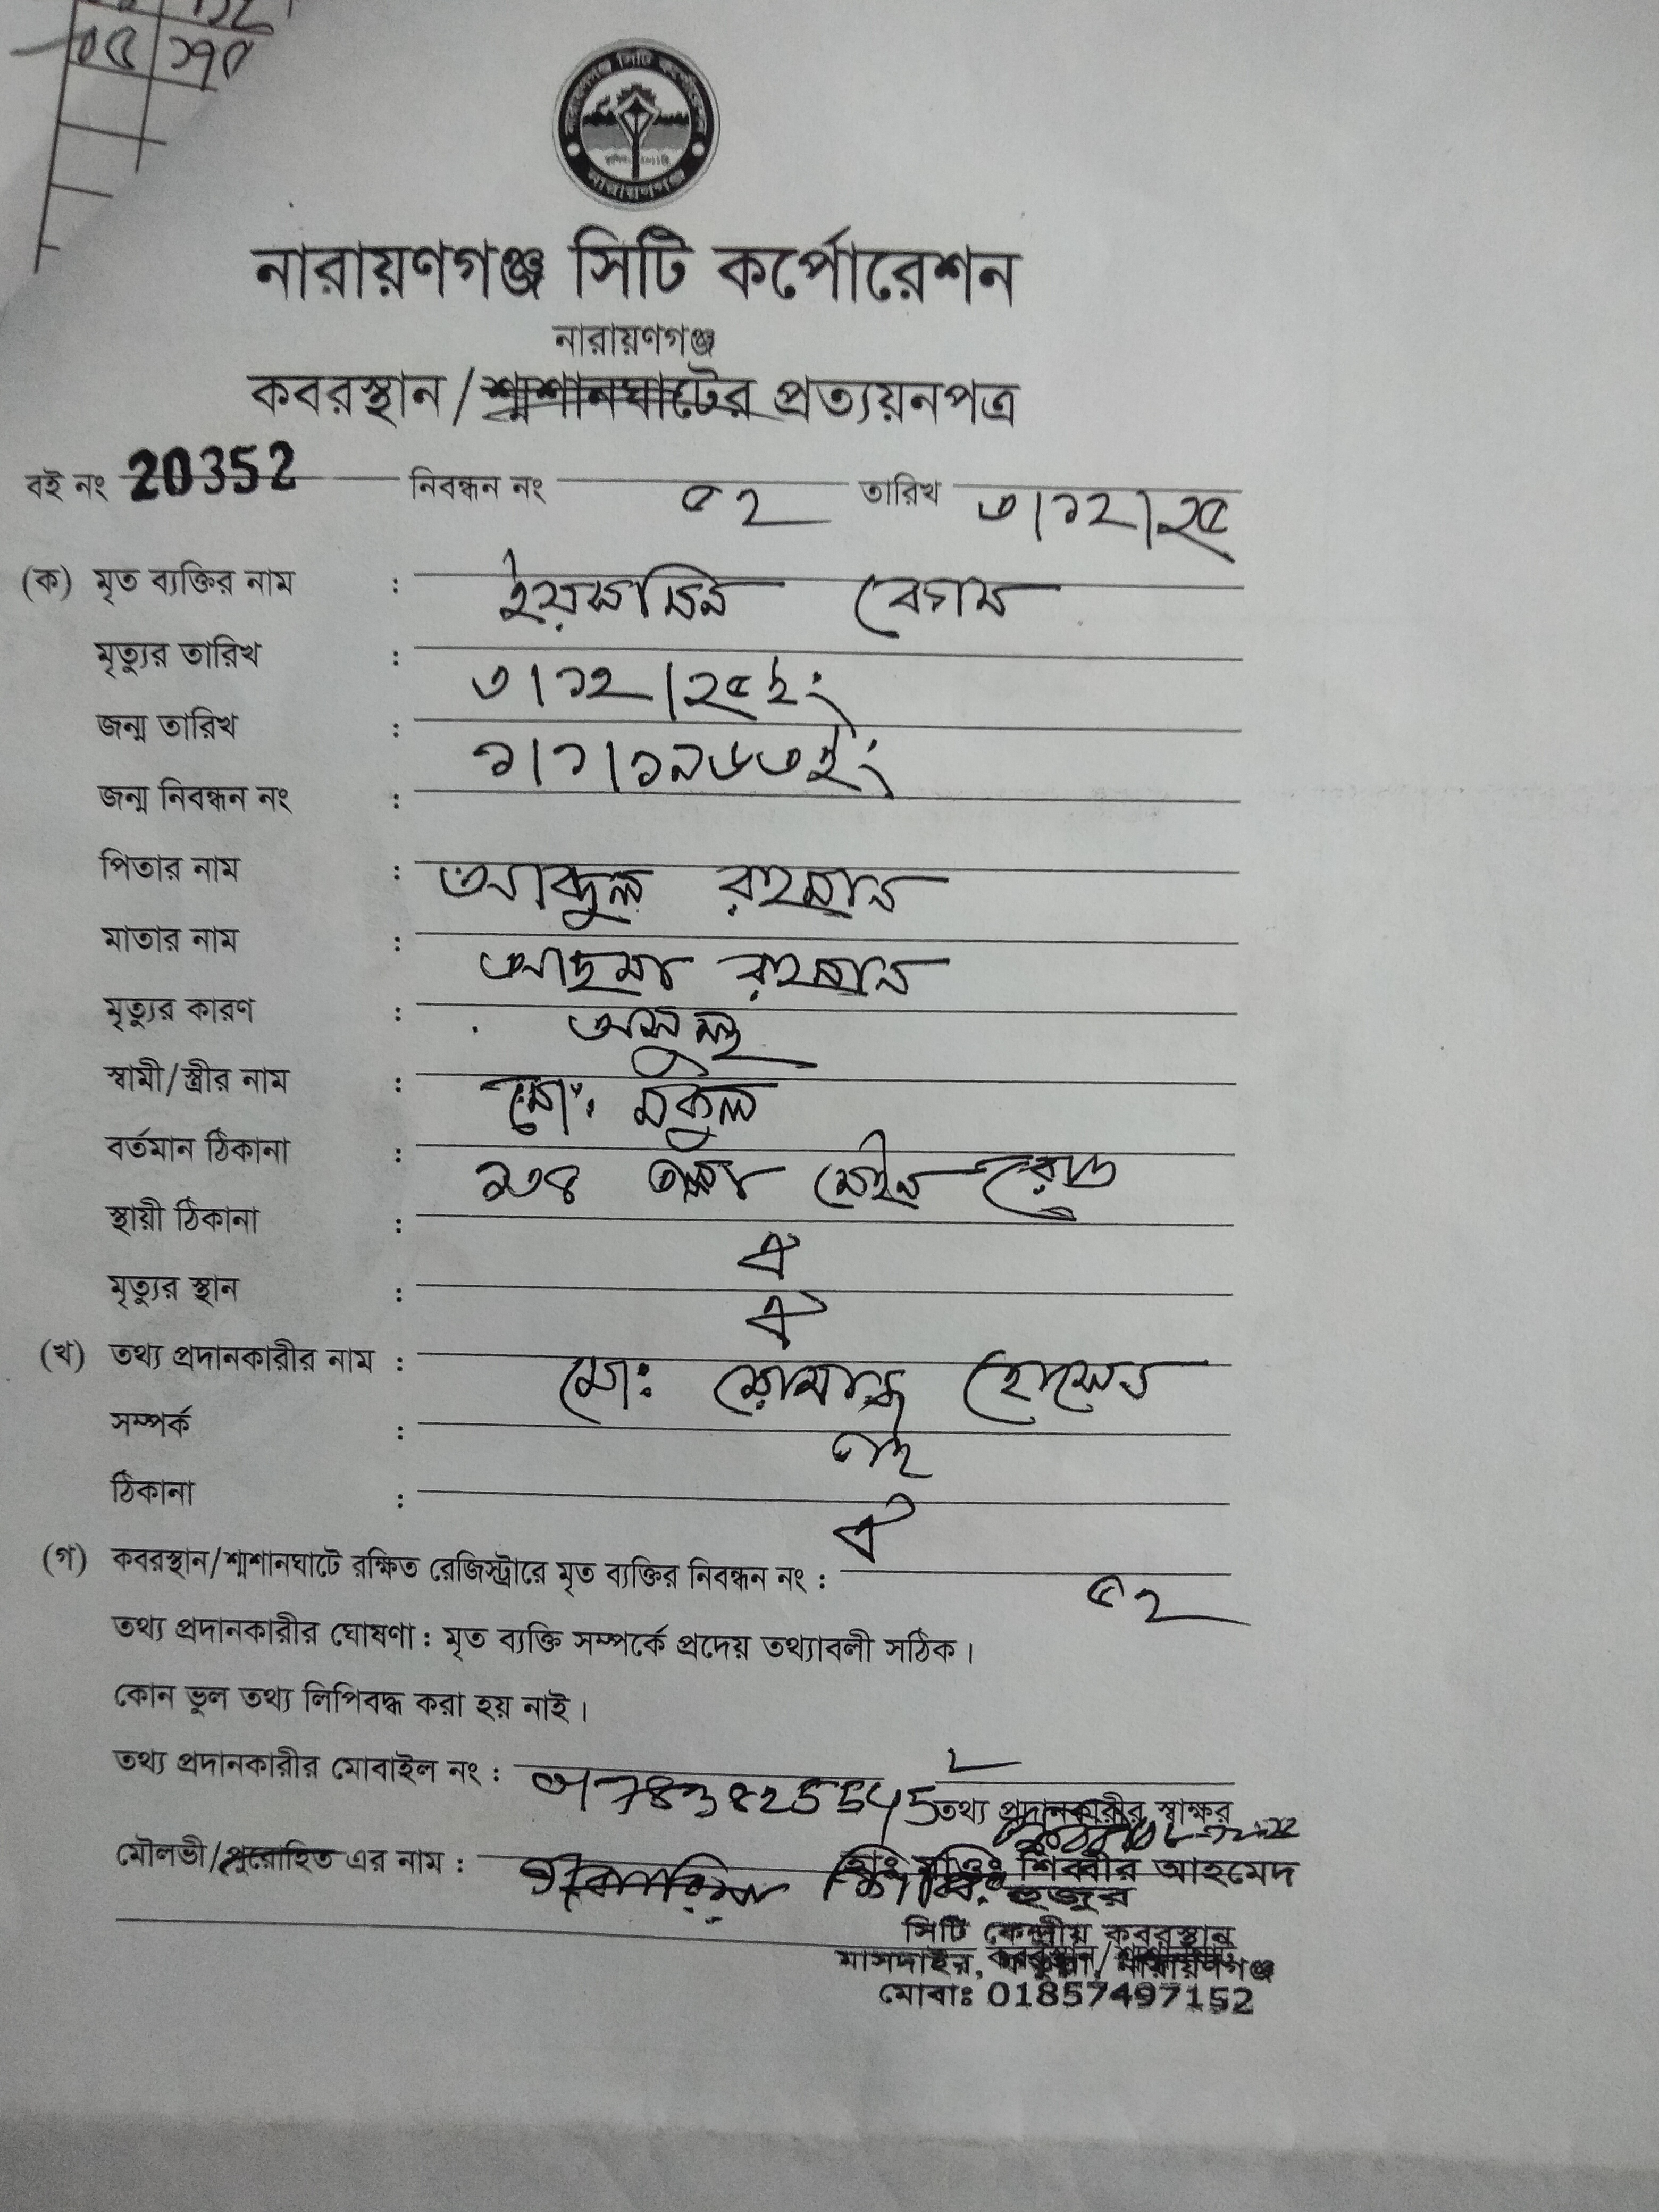 ০৫ ১৭০
নারায়ণগঞ্জ সিটি কর্পোরেশন
নারায়ণগঞ্জ
নারায়ণগঞ্জ সিটি কর্পোরেশন
নারায়ণগঞ্জ
কবরস্থান/শ্মশানঘাটের প্রত্যয়নপত্র
বই নং 20352 নিবন্ধন নং ৫২ তারিখ ৩/১২/২৫
(ক) মৃত ব্যক্তির নাম : ইয়াসমিন বেগম
মৃত্যুর তারিখ : ৩/১২/২৫ইং
জন্ম তারিখ : ১/১/১৯৬৩ইং
জন্ম নিবন্ধন নং :
পিতার নাম : আব্দুল রহমান
মাতার নাম : আছমা রহমান
মৃত্যুর কারণ : অসুস্থ
স্বামী/স্ত্রীর নাম : মোঃ মকুল
বর্তমান ঠিকানা : ১৩৪ তল্লা মেইন রোড
স্থায়ী ঠিকানা : ঐ
মৃত্যুর স্থান : ঐ
(খ) তথ্য প্রদানকারীর নাম : মোঃ হোসেন
সম্পর্ক :
ঠিকানা : ঐ
(গ) কবরস্থান/শ্মশানঘাটে রক্ষিত রেজিস্ট্রারে মৃত ব্যক্তির নিবন্ধন নং : ৫২
তথ্য প্রদানকারীর ঘোষণা : মৃত ব্যক্তি সম্পর্কে প্রদেয় তথ্যাবলী সঠিক।
কোন ভুল তথ্য লিপিবদ্ধ করা হয় নাই।
তথ্য প্রদানকারীর মোবাইল নং :
তথ্য প্রদানকারীর স্বাক্ষর
মৌলভী/পুরোহিত এর নাম :
শিব্বীর আহমেদ
হুজুর
সিটি কেন্দ্রীয় কবরস্থান
কবরস্থান/শ্মশানঘাট
মাসদাইর, ফতুল্লা, নারায়ণগঞ্জ
মোবাঃ 01857497152